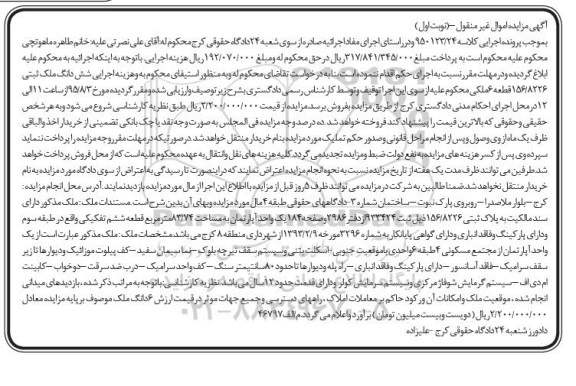 آگهی مزایده اموال غیر منقول –(نوبت اول)
بموجب پرونده اجرایی کلاسه ۹۵۰۱۲۳/۲۴ ودر راستای اجرای مفاد اجرائیه صادره از سوی شعبه ۲۴دادگاه حقوقی کرج محکوم له:آقای علی نصرتی علیه:خانم طاهره ماهوتچی
محکوم علیه محکوم است به پرداخت مبلغ ۳۱۷/۸۴۱/۳۴۵/۰۰۰ریال در حق محکوم له ومبلغ ۱۹۲/۰۷۰/۰۰۰ ریال هزینه اجرایی .باتوجه به اینکه اجرائیه به محکوم علیه
ابلاغ گردیده ودر مهلت مقرر نسبت به اجرای حکم اقدام ننموده است.بنابه درخواست تقاضای محکوم له وبه منظور استیفای محکوم به وهزینه اجرایی شش دانگ ملک ثبتی
۱۵۶/۸۲۲۶ قطعه ۴ملکی محکوم علیه از سوی این اجرا توقیف وتوسط کارشناس رسمی دادگستری بشرح زیر توصیف وارزیابی شده ومقرر گردیده مورخ ۹۵/۸/۳از ساعت ۱۱الی
۱۲در محل اجرای احکام مدنی دادگستری کرج از طریق مزایده بفروش برسد.مزایده از قیمت ۲/۲۰۰/۰۰۰/۰۰۰ریال طبق نظریه کارشناسی شروع می شود وبه هر شخص
حقیقی وحقوقی که بالاترین قیمت را پیشنهاد کند فروخته خواهد شد.ده درصد وجه مزایده فی المجلس به صورت وجه نقد یا چک بانکی تضمینی از خریدار اخذ والباقی
ظرف یک ماه از وی وصول وپس از انجام مراحل قانونی وصدور حکم تملیک مورد مزایده بنام خریدار منتقل خواهد شد.در صورتیکه در مهلت مقرر وجه مزایده را پرداخت ننماید
سپرده وی پس از کسر هزینه های مزایده به نفع دولت ضبط ومزایده تجدید می گردد.کلیه هزینه های نقل وانتقال به عهده محکوم علیه است که از محل فروش پرداخت خواهد
شد.طرفین می توانند ظرف مدت یک هفته از تاریخ مزایده نسبت به نحوه انجام مزایده اعتراض نمایند که در اینصورت تا رسیدگی به اعتراض از سوی دادگاه مورد مزایده به نام
خریدار منتقل نخواهد شد.ضمنا طالبین به شرکت در مزایده می توانند ظرف ۵روز قبل از مزایده با اطلاع این اجرا از مال مورد مزایده بازدید نمایند.آدرس محل انجام مزایده:
کرج –بلوار ملاصدرا –روبروی پارک نبوت –ساختمان شماره ۳ -دادگاههای حقوقی طبقه ۴مال مورد مزایده وبهای آن بدین شرح است.مستندات ملک: ملک مذکور دارای
سند مالکیت به پلاک ثبتی ۱۵۶/۸۲۲۶ ذیل ثبت ۹۳۳۴۲۴دفتر۲۹۸۶ صفحه۱۸۴یک واحد آپارتمان به مساحت ۸۳۷۴مترمربع قطعه ششم تفکیکی واقع در طبقه سوم
ودارای پارکینگ وفاقد انباری ودارای گواهی پایانکار به شماره ۳۲۹۶ مورخه ۱۳۹۳/۲/۹ از شهرداری منطقه ۸ کرج می باشد.مشخصات ملک: ملک مذکور عبارت است از یک
واحد آپارتمان از مجتمع مسکونی ۴طبقه ۶واحدی باموقعیت جنوبی-اسکلت بتنی وسیستم سقف تیرچه بلوک –نما سیمان سفید –کف پیلوت موزائیک ودیوارها تا زیر
سقف سرامیک –فاقد آسانسور –دارای پارکینگ وفاقد انباری –راه پله ودیوارها تا حدود ۸۰سانتیمتر سنگ –کف واحد سرامیک –درب ضد سرقت –دوخواب –کابینت
ام دی اف –سیستم گرمایش شوفاژ مرکزی وسیستم سرمایش کولر ودارای قدمت حدود ۱۲سال می باشد.نظریه کارشناسی:باتوجه به مراتب ذکر شده ،بازدیدهای میدانی
انجام شده ،موقعیت ملک وامکانات آن ورکود حاکم بر معاملات املاک ،راههای دسترسی وجمیع جهات موثر در قیمت ارزش ۶دانگ ملک موصوف بر پایه مزایده معادل
۲/۲۰۰/۰۰۰/۰۰۰ریال (دویست وبیست میلیون تومان) برآورد واعلام می گردد.م/الف۴۶۷۹۷
دادورز شعبه ۲۴دادگاه حقوقی کرج –علیزاده